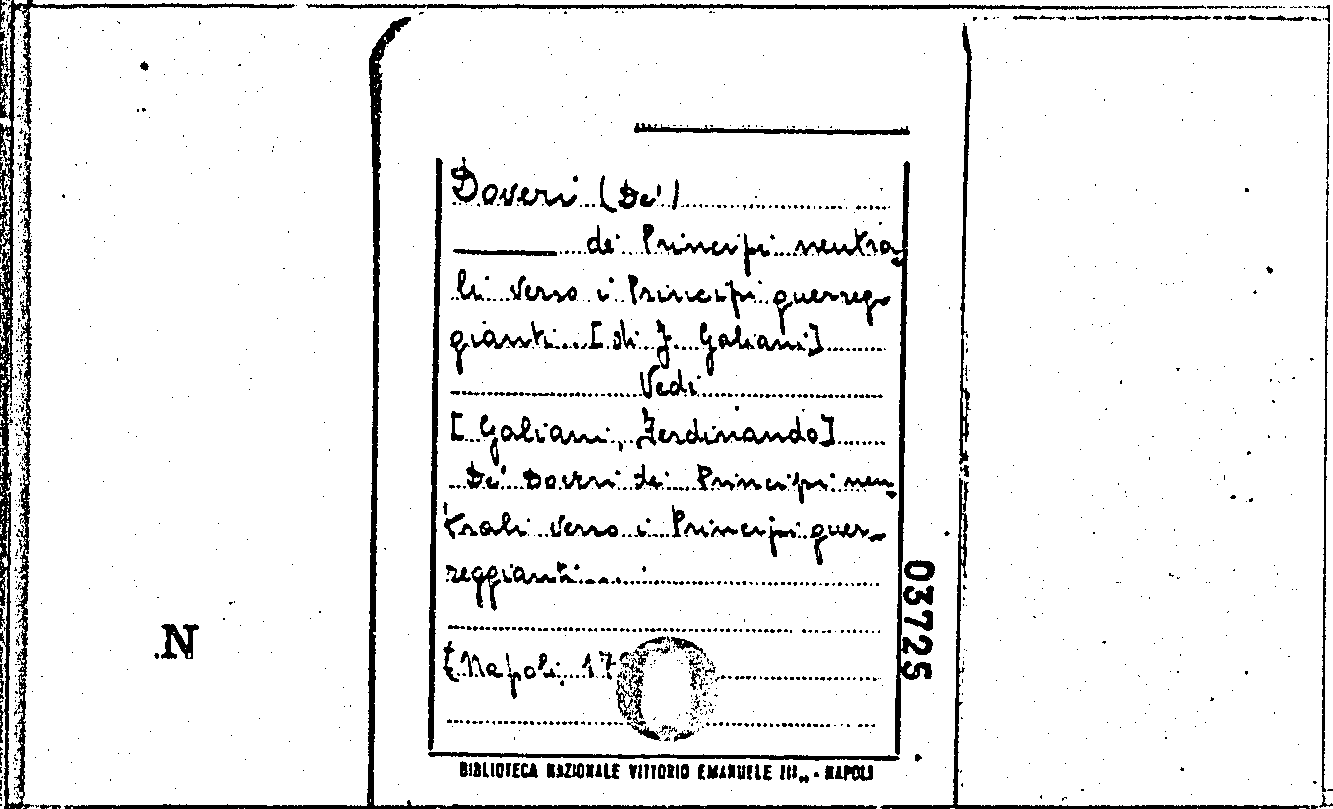 Doveri (De')
de' Principi neutra-
li verso i Principi guerreg-
gianti... [di F. Galiani]
Vedi
[Galiani, Ferdinando]
De' Doveri de' Principi neu-
trali verso i Principi guer-
reggianti....
[Napoli, 17
03725
N
BIBLIOTECA NAZIONALE VITTORIO EMANUELE III„ - NAPOLI